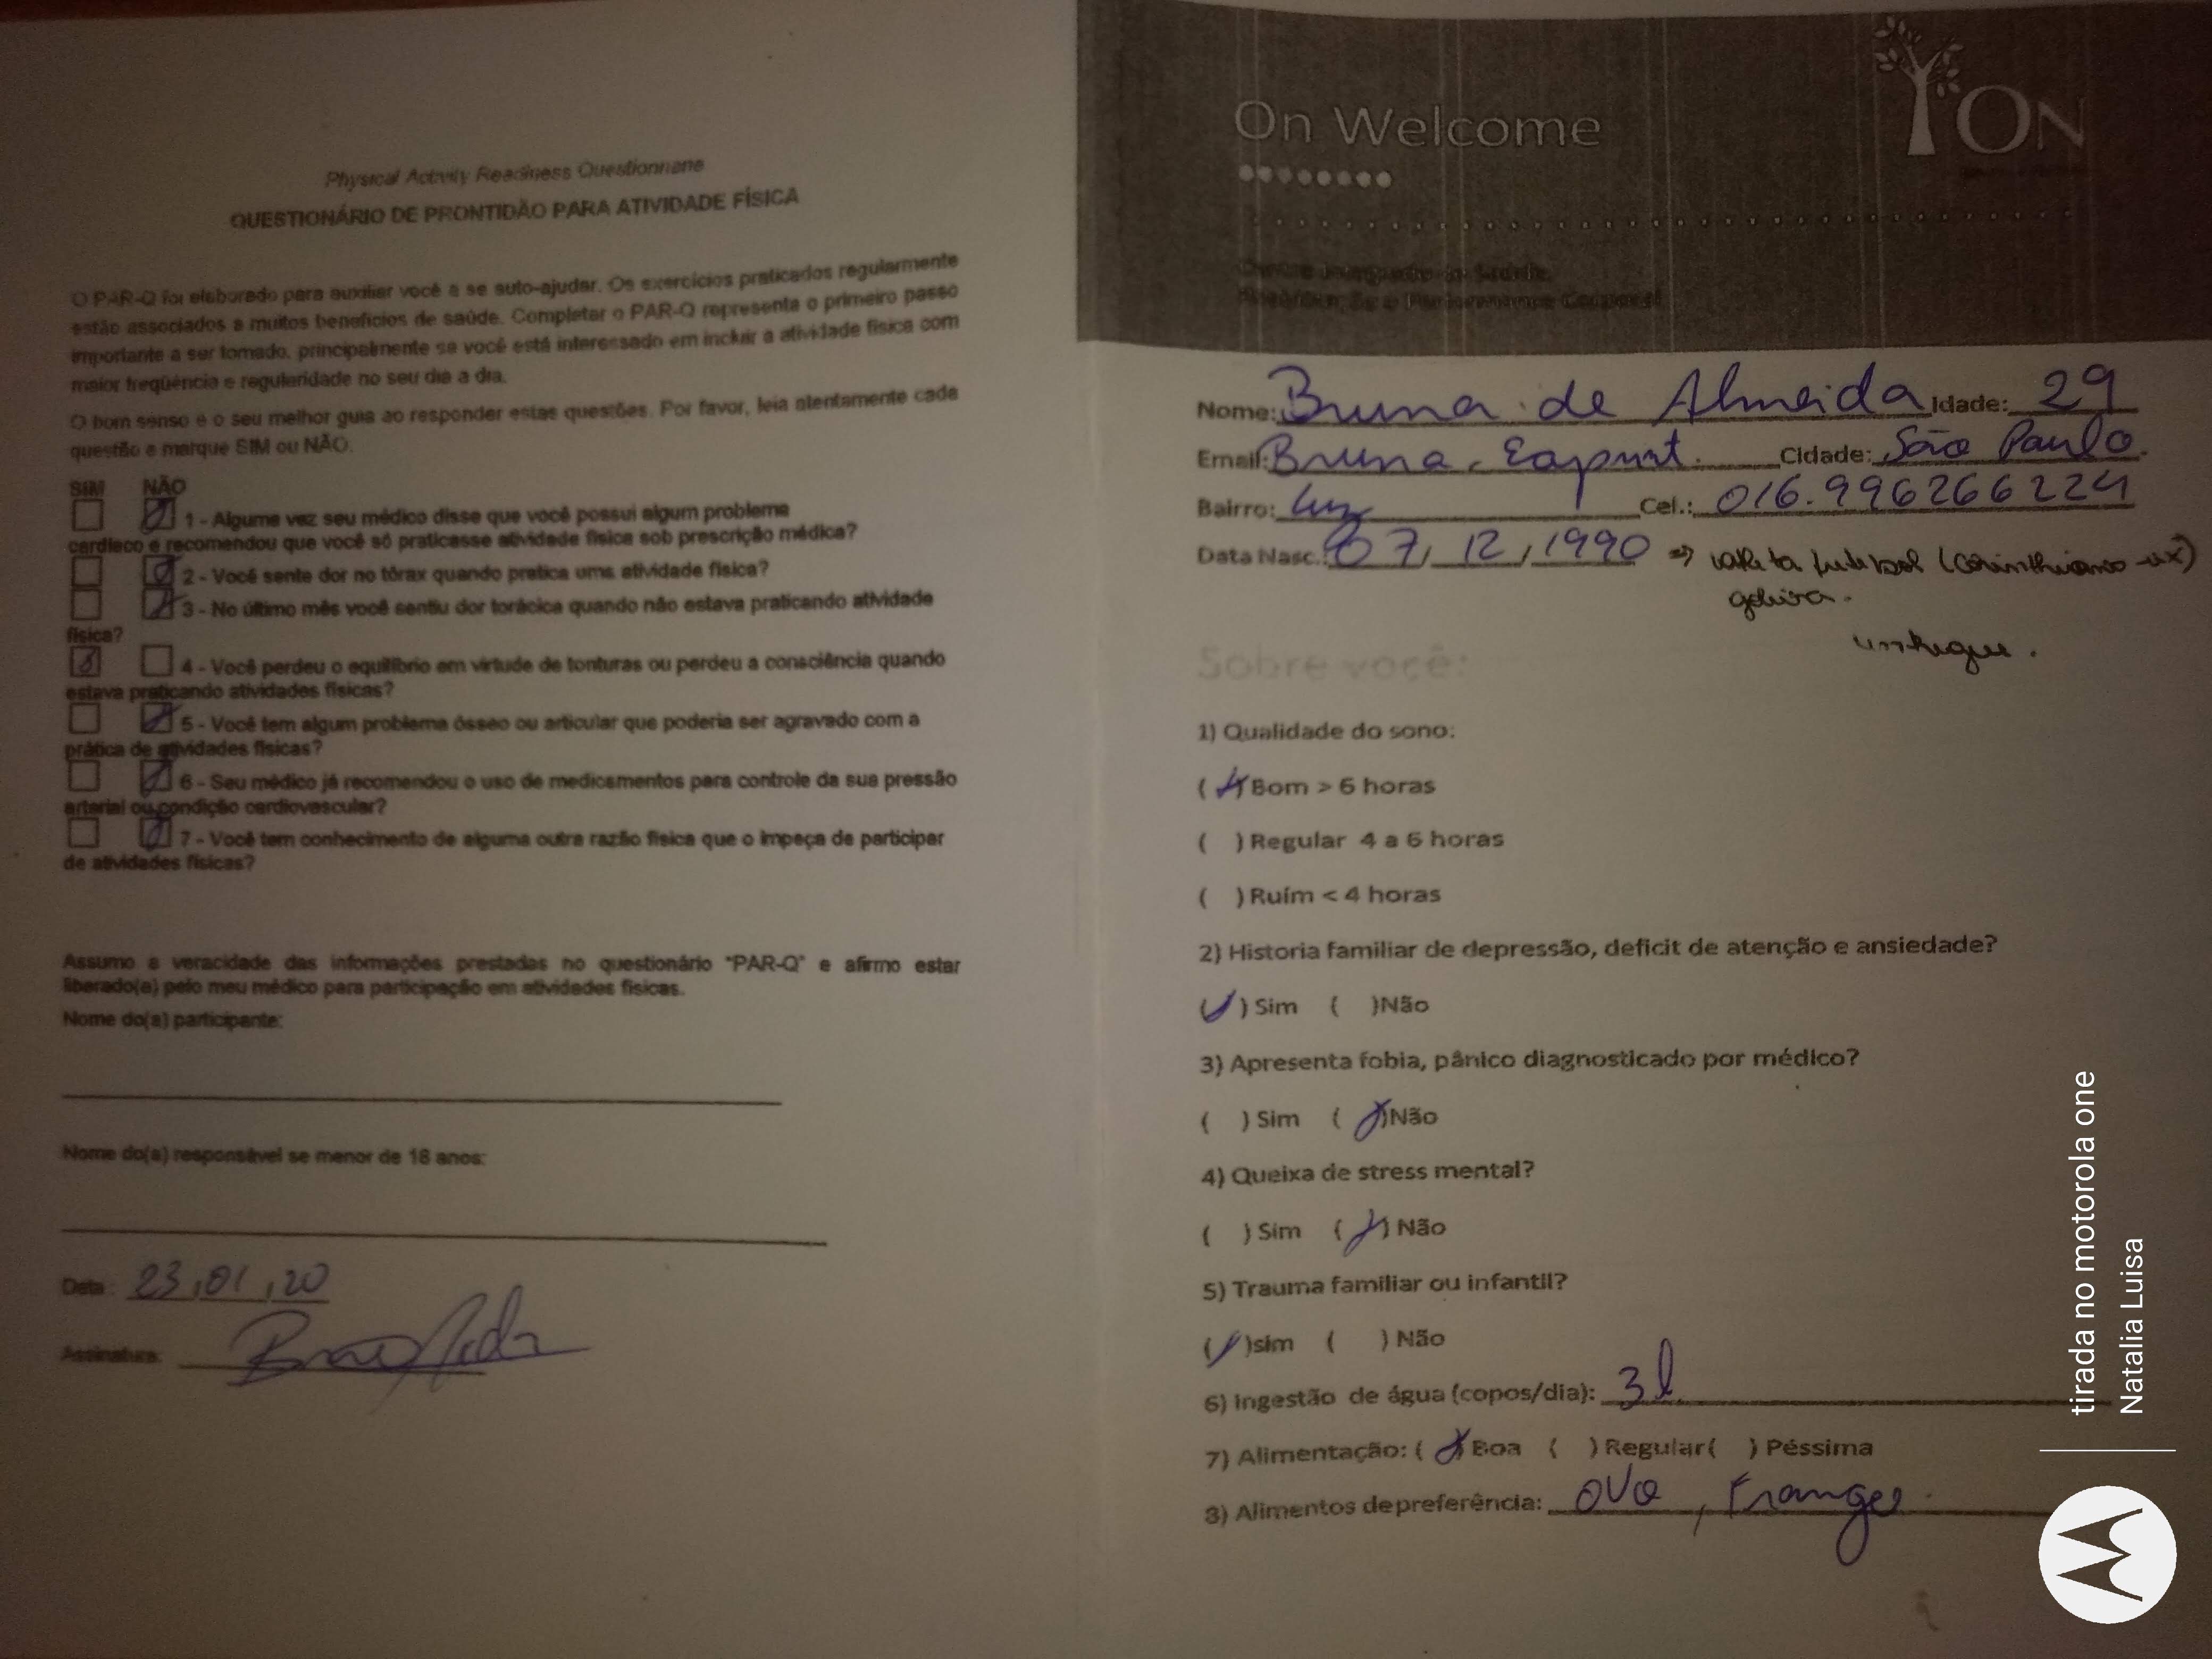 Physical Activity Readiness Questionnaire
QUESTIONÁRIO DE PRONTIDÃO PARA ATIVIDADE FÍSICA
O PAR-Q foi elaborado para auxiliar você a se auto-ajudar. Os exercícios praticados regularmente
estão associados a muitos benefícios de saúde. Completar o PAR-Q representa o primeiro passo
importante a ser tomado, principalmente se você está interessado em incluir a atividade física com
maior freqüência e regularidade no seu dia a dia.
O bom senso é o seu melhor guia ao responder estas questões. Por favor, leia atentamente cada
questão e marque SIM ou NÃO.
SIM NÃO
1 - Alguma vez seu médico disse que você possui algum problema
cardíaco e recomendou que você só praticasse atividade física sob prescrição médica?
2 - Você sente dor no tórax quando pratica uma atividade física?
3 - No último mês você sentiu dor torácica quando não estava praticando atividade
física?
4 - Você perdeu o equilíbrio em virtude de tonturas ou perdeu a consciência quando
estava praticando atividades físicas?
5 - Você tem algum problema ósseo ou articular que poderia ser agravado com a
prática de atividades físicas?
6 - Seu médico já recomendou o uso de medicamentos para controle da sua pressão
arterial ou condição cardiovascular?
7 - Você tem conhecimento de alguma outra razão física que o impeça de participar
de atividades físicas?
Assumo a veracidade das informações prestadas no questionário "PAR-Q" e afirmo estar
liberado(a) pelo meu médico para participação em atividades físicas.
Nome do(a) participante:
Nome do(a) responsável se menor de 18 anos:
Data: 23, 01, 20
Assinatura:
On Welcome
ON
Nome: Bruna de Almeida Idade: 29
Email: Bruna. Cidade: São Paulo.
Bairro: Luz Cel.: 016.996266224
Data Nasc.: 07, 12, 1990 ⇒
Sobre você:
1) Qualidade do sono:
( x) Bom > 6 horas
( ) Regular 4 a 6 horas
( ) Ruím < 4 horas
2) Historia familiar de depressão, deficit de atenção e ansiedade?
( ) Sim ( )Não
3) Apresenta fobia, pânico diagnosticado por médico?
( ) Sim ( x)Não
4) Queixa de stress mental?
( ) Sim ( x) Não
5) Trauma familiar ou infantil?
( )sim ( ) Não
6) Ingestão de água (copos/dia): 3l
7) Alimentação: ( x Boa ( ) Regular( ) Péssima
8) Alimentos de preferência: ovo, Frango.
tirada no motorola one
Natalia Luisa